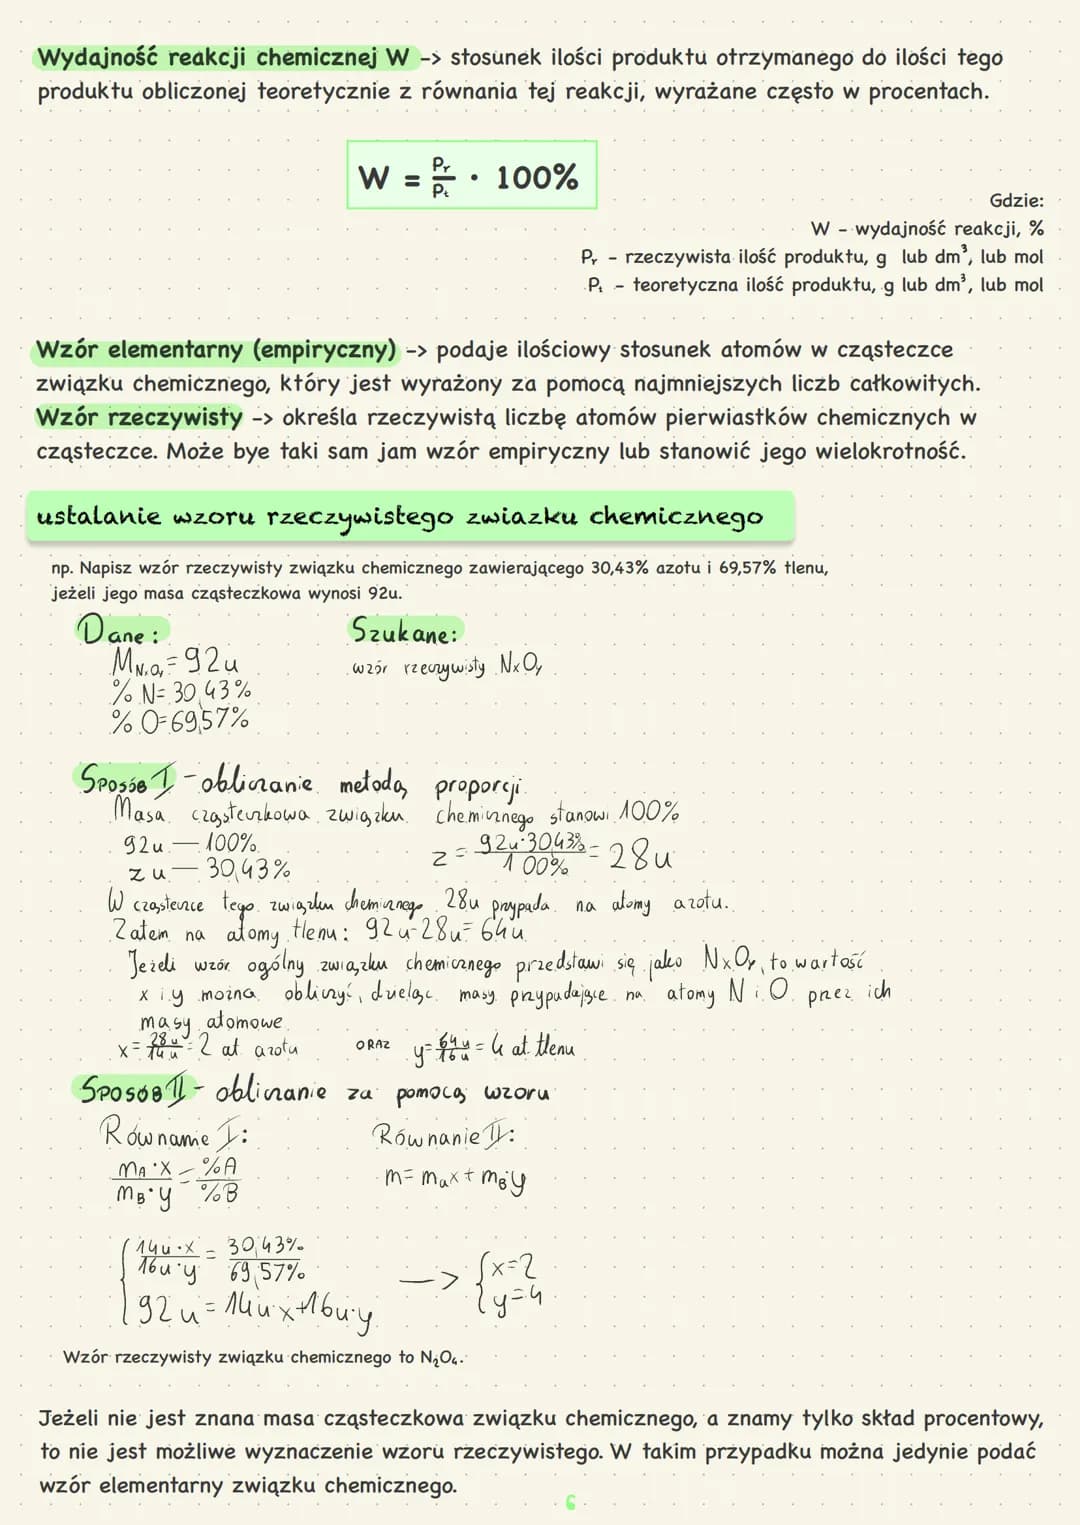 Wydajność reakcji chemicznej W -> stosunek ilości produktu otrzymanego do ilości tego
produktu obliczonej teoretycznie z równania tej reakcji, wyrażane często w procentach.
W = Pr/Pt · 100%
Gdzie:
W - wydajność reakcji, %
Pr - rzeczywista ilość produktu, g lub dm³, lub mol
Pt - teoretyczna ilość produktu, g lub dm³, lub mol
Wzór elementarny (empiryczny) -> podaje ilościowy stosunek atomów w cząsteczce
związku chemicznego, który jest wyrażony za pomocą najmniejszych liczb całkowitych.
Wzór rzeczywisty -> określa rzeczywistą liczbę atomów pierwiastków chemicznych w
cząsteczce. Może bye taki sam jam wzór empiryczny lub stanowić jego wielokrotność.
ustalanie wzoru rzeczywistego zwiazku chemicznego
np. Napisz wzór rzeczywisty związku chemicznego zawierającego 30,43% azotu i 69,57% tlenu,
jeżeli jego masa cząsteczkowa wynosi 92u.
Dane: Szukane:
MNxOy = 92u wzór rzeczywisty NxOy
% N = 30,43%
% O = 69,57%
Sposób I - obliczanie metodą proporcji
Masa cząsteczkowa związku chemicznego stanowi 100%
92u — 100% z = 92u·30,43%/100% = 28u
z u — 30,43%
W cząsteczce tego związku chemicznego 28u przypada na atomy azotu.
Zatem na atomy tlenu: 92u-28u=64u
Jeżeli wzór ogólny związku chemicznego przedstawi się jako NxOy, to wartość
x i y można obliczyć, dzieląc masy przypadające na atomy N i O przez ich
masy atomowe
x = 28u/14u = 2 at azotu ORAZ y = 64u/16u = 4 at. tlenu
Sposób II - obliczanie za pomocą wzoru
Równanie I: Równanie II:
mA·x/mB·y = %A/%B m = mAx + mBy
14u·x/16u·y = 30,43%/69,57%
92u = 14u·x+16u·y -> {x=2 y=4
Wzór rzeczywisty związku chemicznego to N₂O₄.
Jeżeli nie jest znana masa cząsteczkowa związku chemicznego, a znamy tylko skład procentowy,
to nie jest możliwe wyznaczenie wzoru rzeczywistego. W takim przypadku można jedynie podać
wzór elementarny związku chemicznego.
6